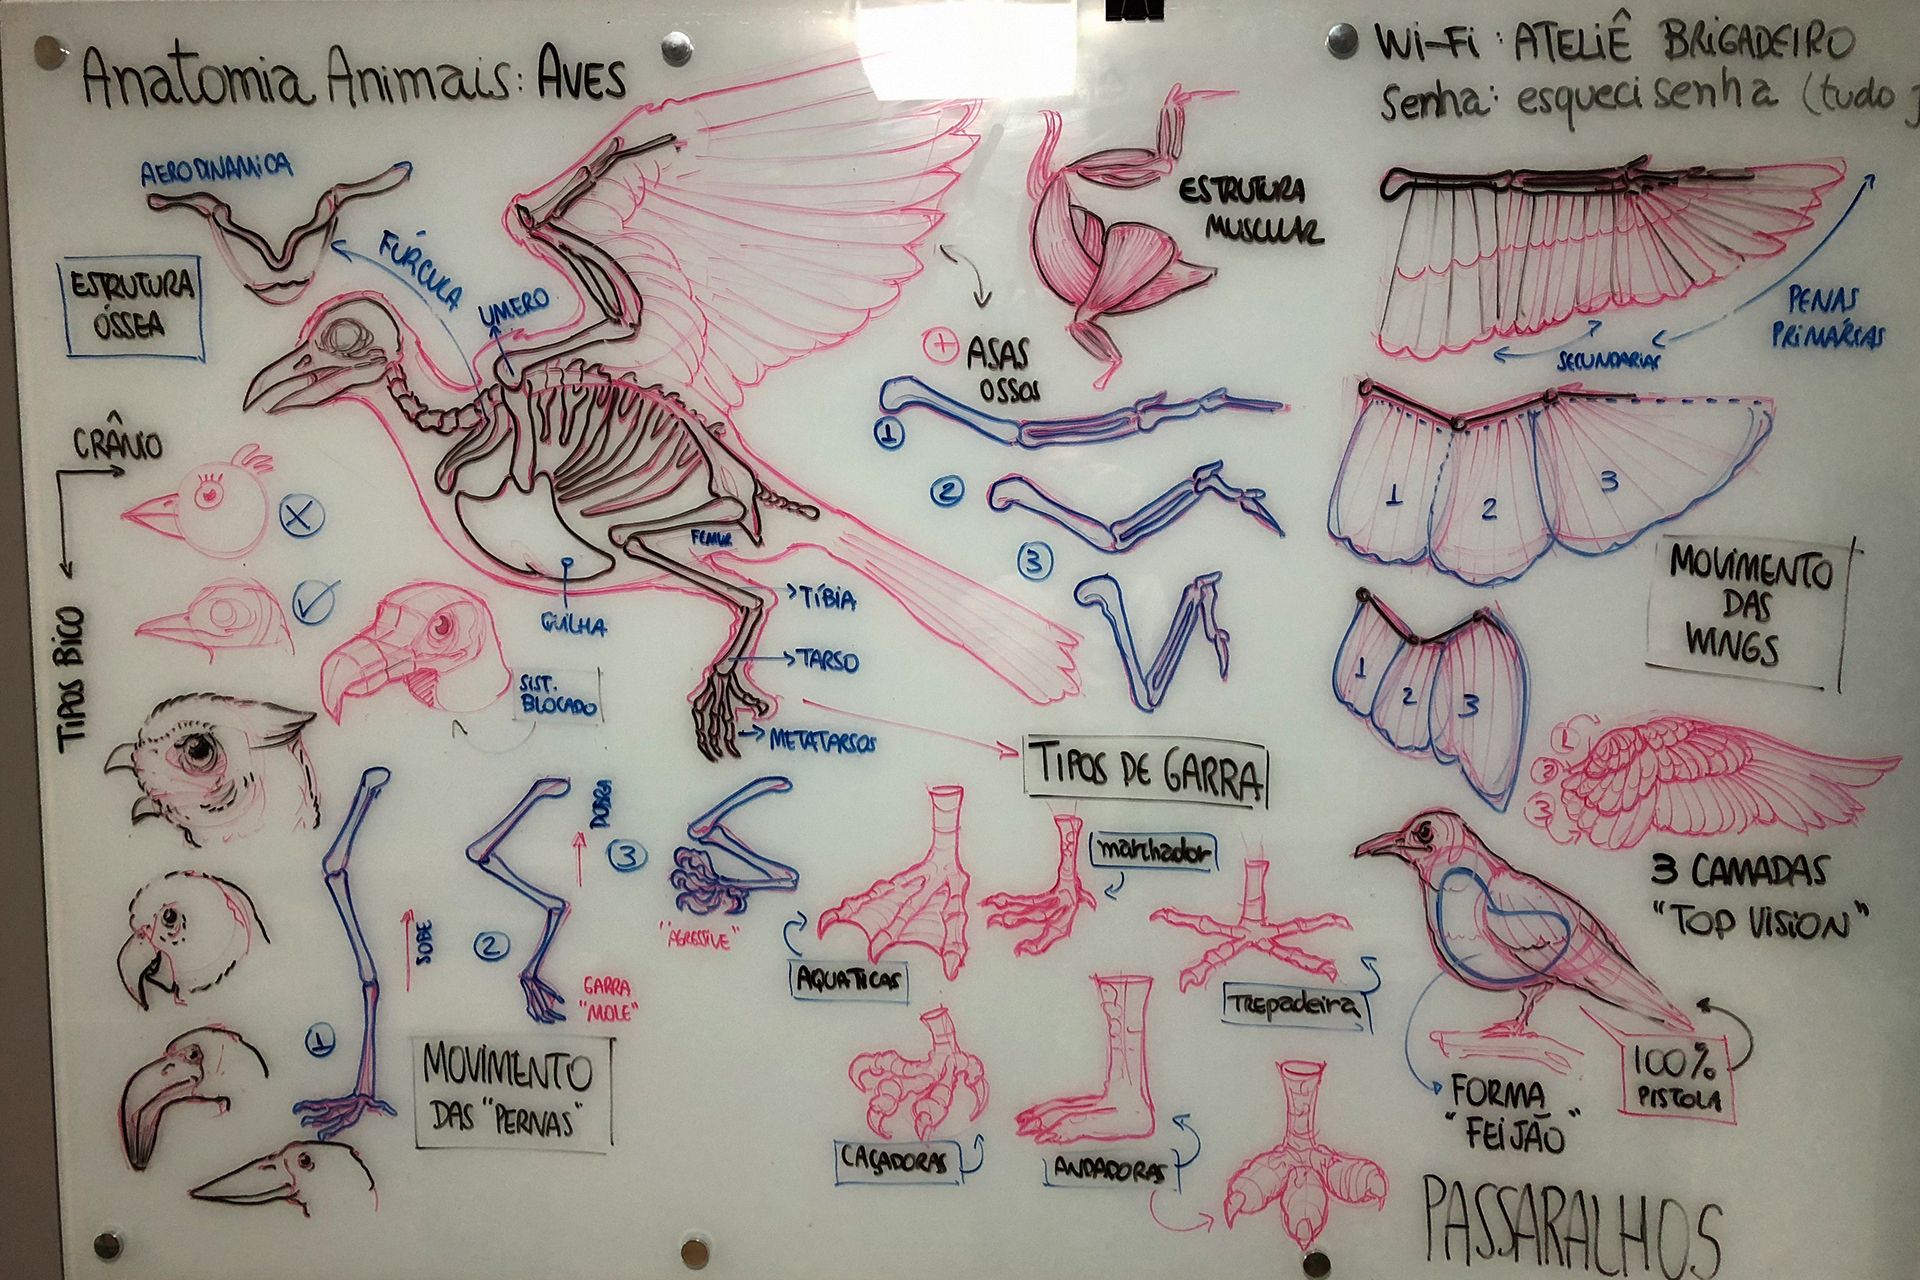 Anatomia Animais: AVES
Wi-Fi: ATELIÊ BRIGADEIRO
Senha: esqueci senha (tudo
AERODINAMICA
FÚRCULA
ESTRUTURA
ÓSSEA
UMERO
ESTRUTURA
MUSCULAR
+ ASAS
OSSOS
1
2
3
PENAS
PRIMÁRIAS
SECUNDARIAS
1
2
3
MOVIMENTO
DAS
WINGS
1
2
3
CRÂNIO
TIPOS BICO
FEMUR
TÍBIA
QUILHA
TARSO
METATARSOS
SIST.
BLOCADO
TIPOS DE GARRA
marchador
AQUATICAS
TREPadeira
CAÇADORAS
ANDADORAS
1
SOBE
2
GARRA
"MOLE"
DOBRA
3
"AGRESSIVE"
MOVIMENTO
DAS "PERNAS"
1
2
3
3 CAMADAS
"TOP VISION"
100%
PISTOLA
FORMA
"FEIJÃO"
PASSARALHOS